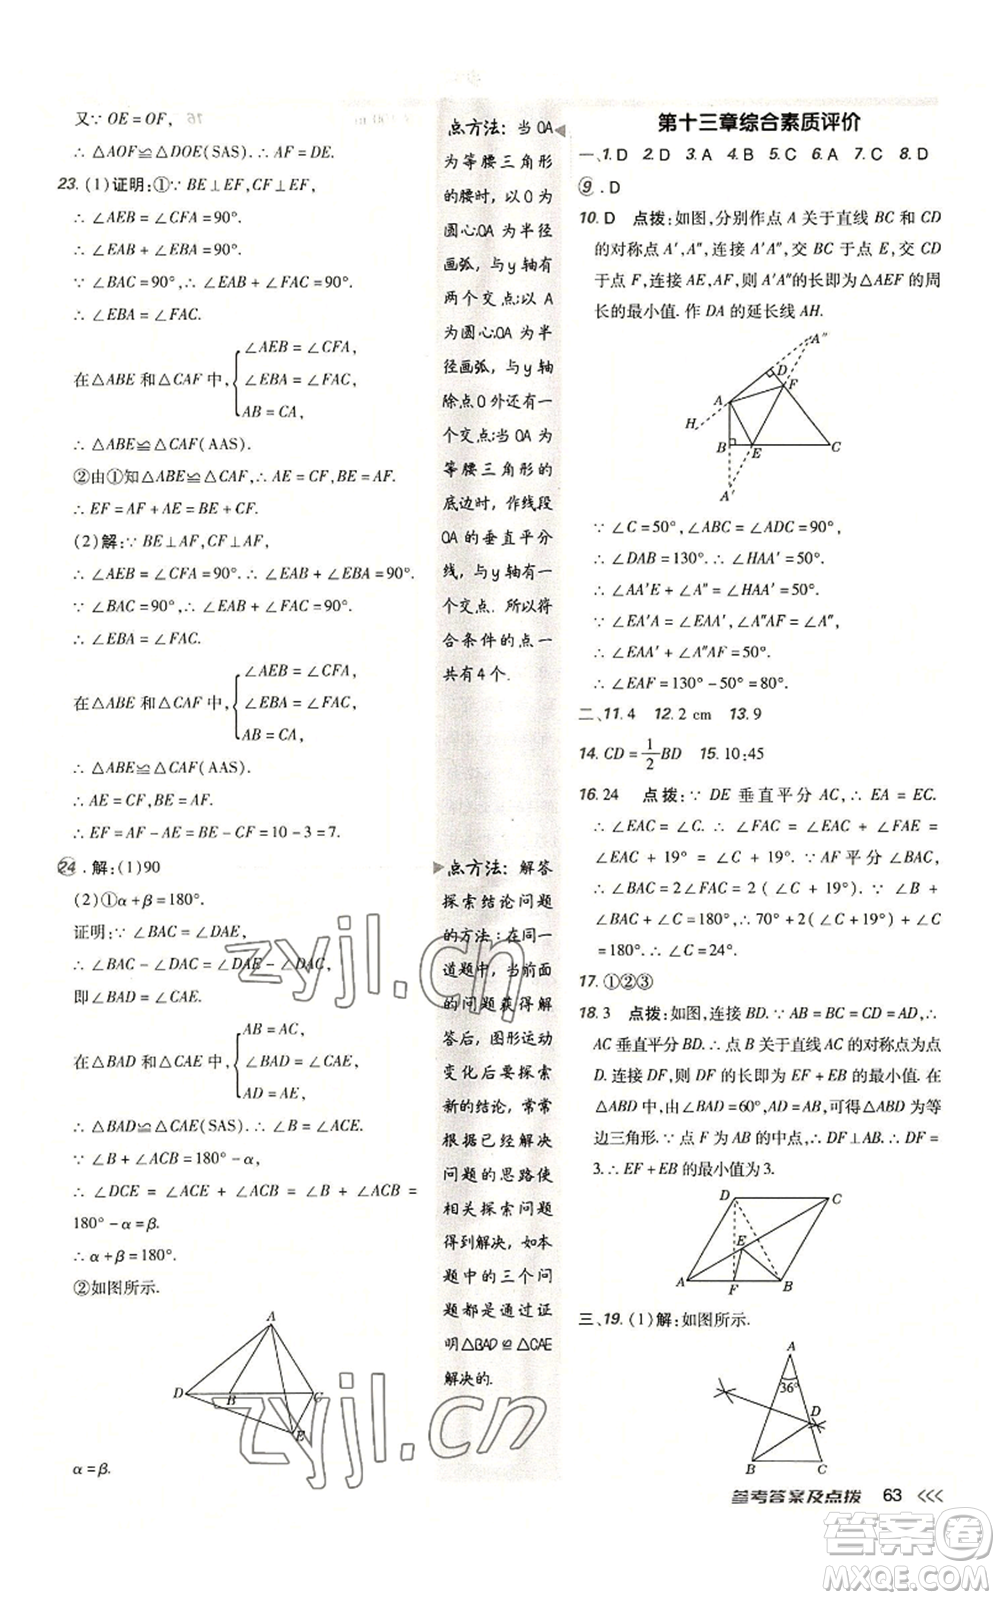 又∵ OE = OF,
∴ △AOF≌△DOE(SAS). ∴ AF = DE.
23. (1)证明:①∵ BE⊥EF,CF⊥EF,
∴ ∠AEB = ∠CFA = 90°.
∴ ∠EAB + ∠EBA = 90°.
∵ ∠BAC = 90°,∴ ∠EAB + ∠FAC = 90°.
∴ ∠EBA = ∠FAC.
在△ABE 和△CAF 中,
∠AEB = ∠CFA,
∠EBA = ∠FAC,
AB = CA,
∴ △ABE≌△CAF(AAS).
②由①知△ABE≌△CAF,∴ AE = CF,BE = AF.
∴ EF = AF + AE = BE + CF.
(2)解:∵ BE⊥AF,CF⊥AF,
∴ ∠AEB = ∠CFA = 90°. ∴ ∠EAB + ∠EBA = 90°.
∵ ∠BAC = 90°,∴ ∠EAB + ∠FAC = 90°.
∴ ∠EBA = ∠FAC.
在△ABE 和△CAF 中,
∠AEB = ∠CFA,
∠EBA = ∠FAC,
AB = CA,
∴ △ABE≌△CAF(AAS).
∴ AE = CF,BE = AF.
∴ EF = AF − AE = BE − CF = 10 − 3 = 7.
24. 解:(1)90
(2)①α + β = 180°.
证明:∵ ∠BAC = ∠DAE,
∴ ∠BAC − ∠DAC = ∠DAE − ∠DAC,
即∠BAD = ∠CAE.
在△BAD 和△CAE 中,
AB = AC,
∠BAD = ∠CAE,
AD = AE,
∴ △BAD≌△CAE(SAS). ∴ ∠B = ∠ACE.
∵ ∠B + ∠ACB = 180° − α,
∴ ∠DCE = ∠ACE + ∠ACB = ∠B + ∠ACB =
180° − α = β.
∴ α + β = 180°.
②如图所示.
A
D
B
C
E
α = β.
点方法: 当OA
为等腰三角形
的腰时,以O为
圆心,OA为半径
画弧,与y轴有
两个交点;以A
为圆心,OA为半
径画弧,与y轴
除点O外还有一
个交点;当OA为
等腰三角形的
底边时,作线段
OA的垂直平分
线,与y轴有一
个交点.所以符
合条件的点一
共有4个.
点方法: 解答
探索结论问题
的方法:在同一
道题中,当前面
的问题获得解
答后,图形运动
变化后要探索
新的结论,常常
根据已经解决
问题的思路使
相关探索问题
得到解决,如本
题中的三个问
题都是通过证
明△BAD≌△CAE
解决的.
第十三章综合素质评价
一、1. D 2. D 3. A 4. B 5. C 6. A 7. C 8. D
9. D
10. D 点拨:如图,分别作点 A 关于直线 BC 和 CD
的对称点 A′,A″,连接 A′A″,交 BC 于点 E,交 CD
于点 F,连接 AE,AF,则 A′A″的长即为△AEF 的周
长的最小值. 作 DA 的延长线 AH.
A″
D
F
A
H
B
E
C
A′
∵ ∠C = 50°,∠ABC = ∠ADC = 90°,
∴ ∠DAB = 130°. ∴ ∠HAA′ = 50°.
∴ ∠AA′E + ∠A″ = ∠HAA′ = 50°.
∵ ∠EA′A = ∠EAA′,∠A″AF = ∠A″,
∴ ∠EAA′ + ∠A″AF = 50°.
∴ ∠EAF = 130° − 50° = 80°.
二、11. 4 12. 2 cm 13. 9
14. CD = 1/2 BD 15. 10:45
16. 24 点拨:∵ DE 垂直平分 AC,∴ EA = EC.
∴ ∠EAC = ∠C. ∴ ∠FAC = ∠EAC + 19° =
∠C + 19°. ∵ AF平分∠BAC,∴ ∠FAB = ∠FAC.
∴ ∠BAC = 2∠FAC = 2(∠C + 19°). ∵ ∠B +
∠BAC + ∠C = 180°,∴ 70° + 2(∠C + 19°) + ∠C
= 180°. ∴ ∠C = 24°.
17. ①②③
18. 3 点拨:如图,连接 BD. ∵ AB = BC = CD = AD,∴
AC 垂直平分 BD. ∴ 点 B 关于直线 AC 的对称点为点
D. 连接 DF,则 DF 的长即为 EF + EB 的最小值. 在
△ABD 中,由∠BAD = 60°,AB = AD,可得△ABD 为等
边三角形. ∵ 点 F 为 AB 的中点,∴ DF⊥AB. ∴ DF =
3. ∴ EF + EB 的最小值为 3.
D
C
E
A
F
B
三、19. (1)解:如图所示.
A
36°
D
B
C
参考答案及点拨 63
zyjl.cn
zyjl.cn
答案卷
MXQE.COM